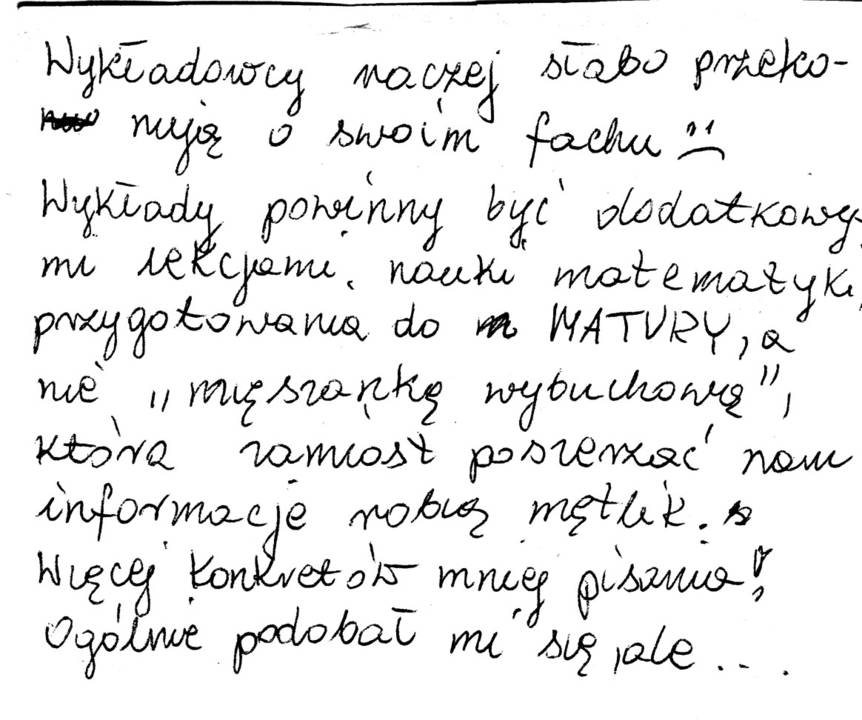 Wykładowcy raczej słabo przeko-
nują o swoim fachu :(
Wykłady powinny być dodatkowy-
mi lekcjami, nauki matematyki,
przygotowania do MATURY, a
nie „mięszanką wybuchową",
która zamiost poszerzać nam
informacje robią mętlik.
Więcej konkretów mniej pisania!
Ogólnie podobał mi się, ale ...